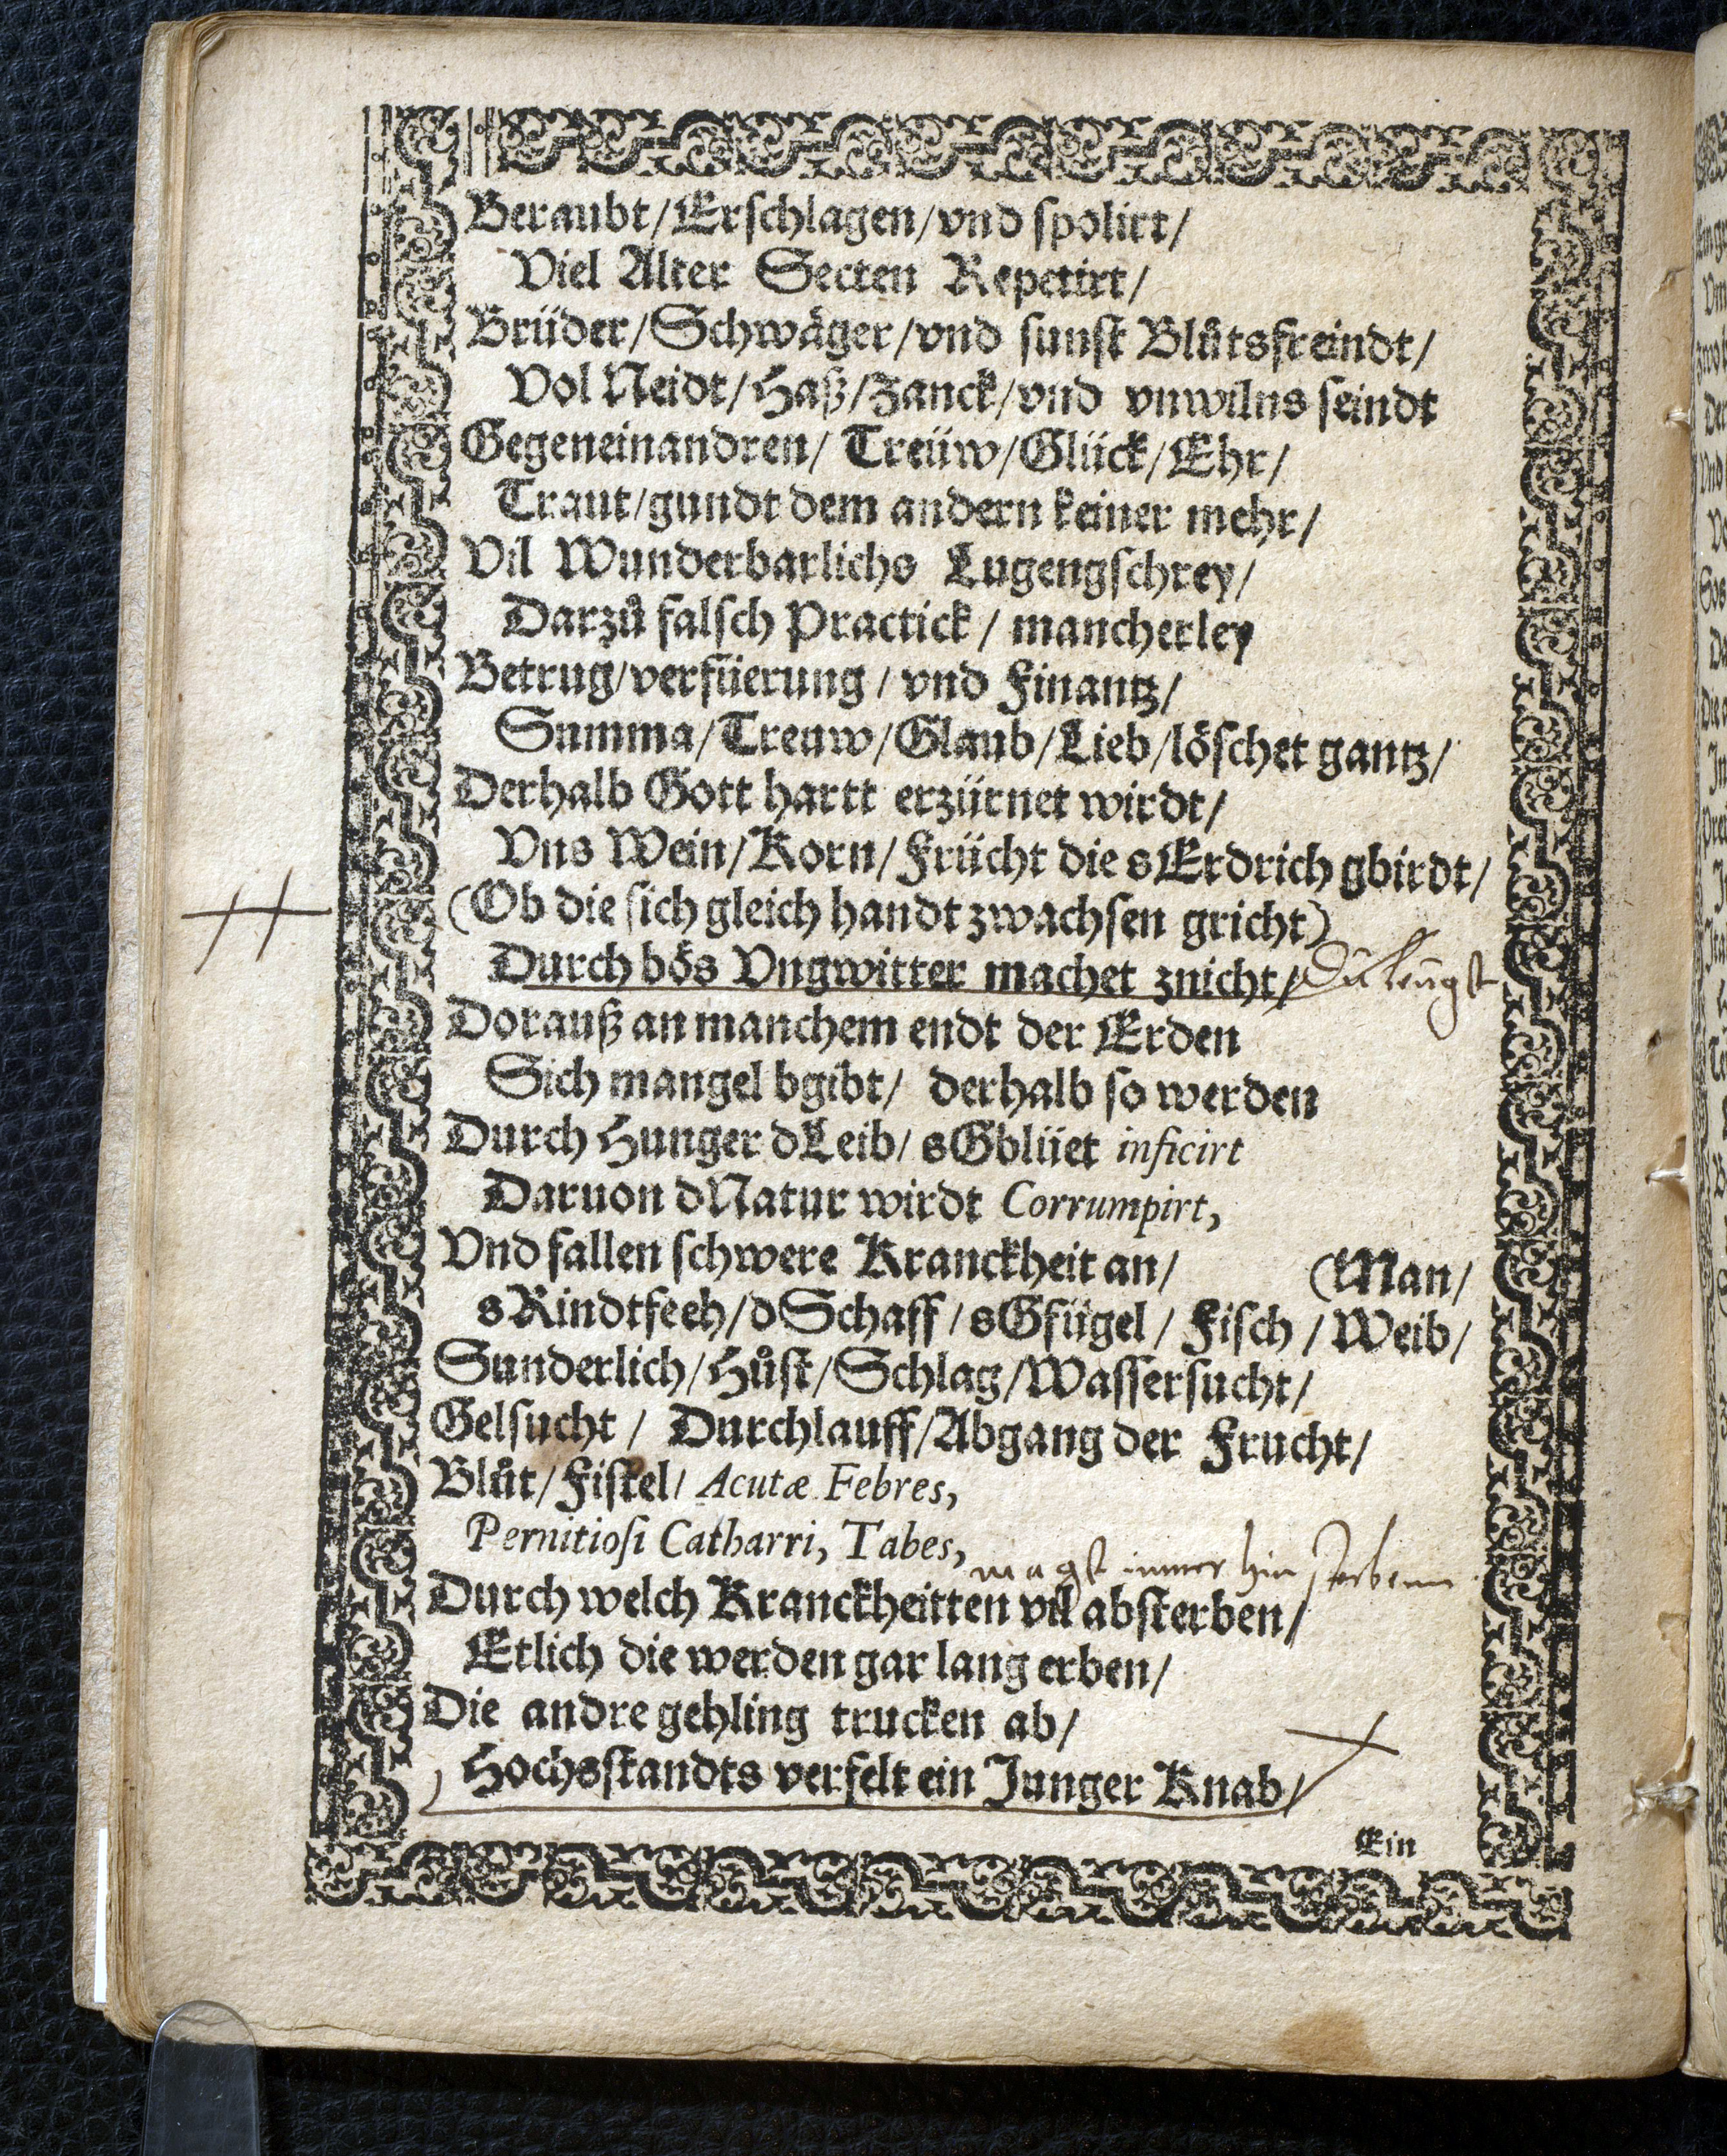 Beraubt/Erschlagen/vnd spolirt/
Viel Alter Secten Repetirt/
Brüder/Schwäger/vnd sunst Blůtsfreindt/
Vol Neidt/Haß/Zanck/vnd vnwilns seindt
Gegeneinandren/ Treüw/Glück/Ehr/
Traut/gundt dem andern keiner mehr/
Vil Wunderbarlichs Lugengschrey/
Darzů falsch Practick/ mancherley
Betrug/verfüerung/ vnd Finantz/
Summa/Treuw/Glaub/Lieb/löschet gantz/
Derhalb Gott hartt erzürnet wirdt/
Vns Wein/Korn/Frücht die sErdrich gbirdt/
(Ob die sich gleich handt zwachsen gricht)
Durch bös Vngwitter machet znicht/ Du leugst
Dorauß an manchem endt der Erden
Sich mangel bgibt/ derhalb so werden
Durch Hunger dLeib/ sGblüet inficirt
Daruon dNatur wirdt Corrumpirt,
Vnd fallen schwere Kranckheit an/ (Man/
sRindtfeeh/dSchaff/sGfügel/ Fisch/Weib/
Sunderlich/Hůst/Schlag/Wassersucht/
Gelsucht/ Durchlauff/Abgang der Frucht/
Blůt/Fistel/ Acutæ Febres,
Pernitiosi Catharri, Tabes,
magst immer hin sterbenn
Durch welch Kranckheitten vil absterben/
Etlich die werden gar lang erben/
Die andre gehling trucken ab/
Hochsstandts verfelt ein Junger Knab/
Ein